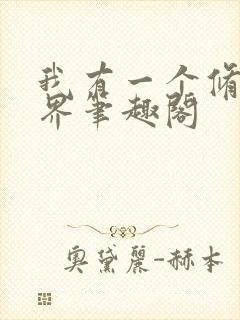 我有一个脩
界笔趣阁
奥黛丽-赫本